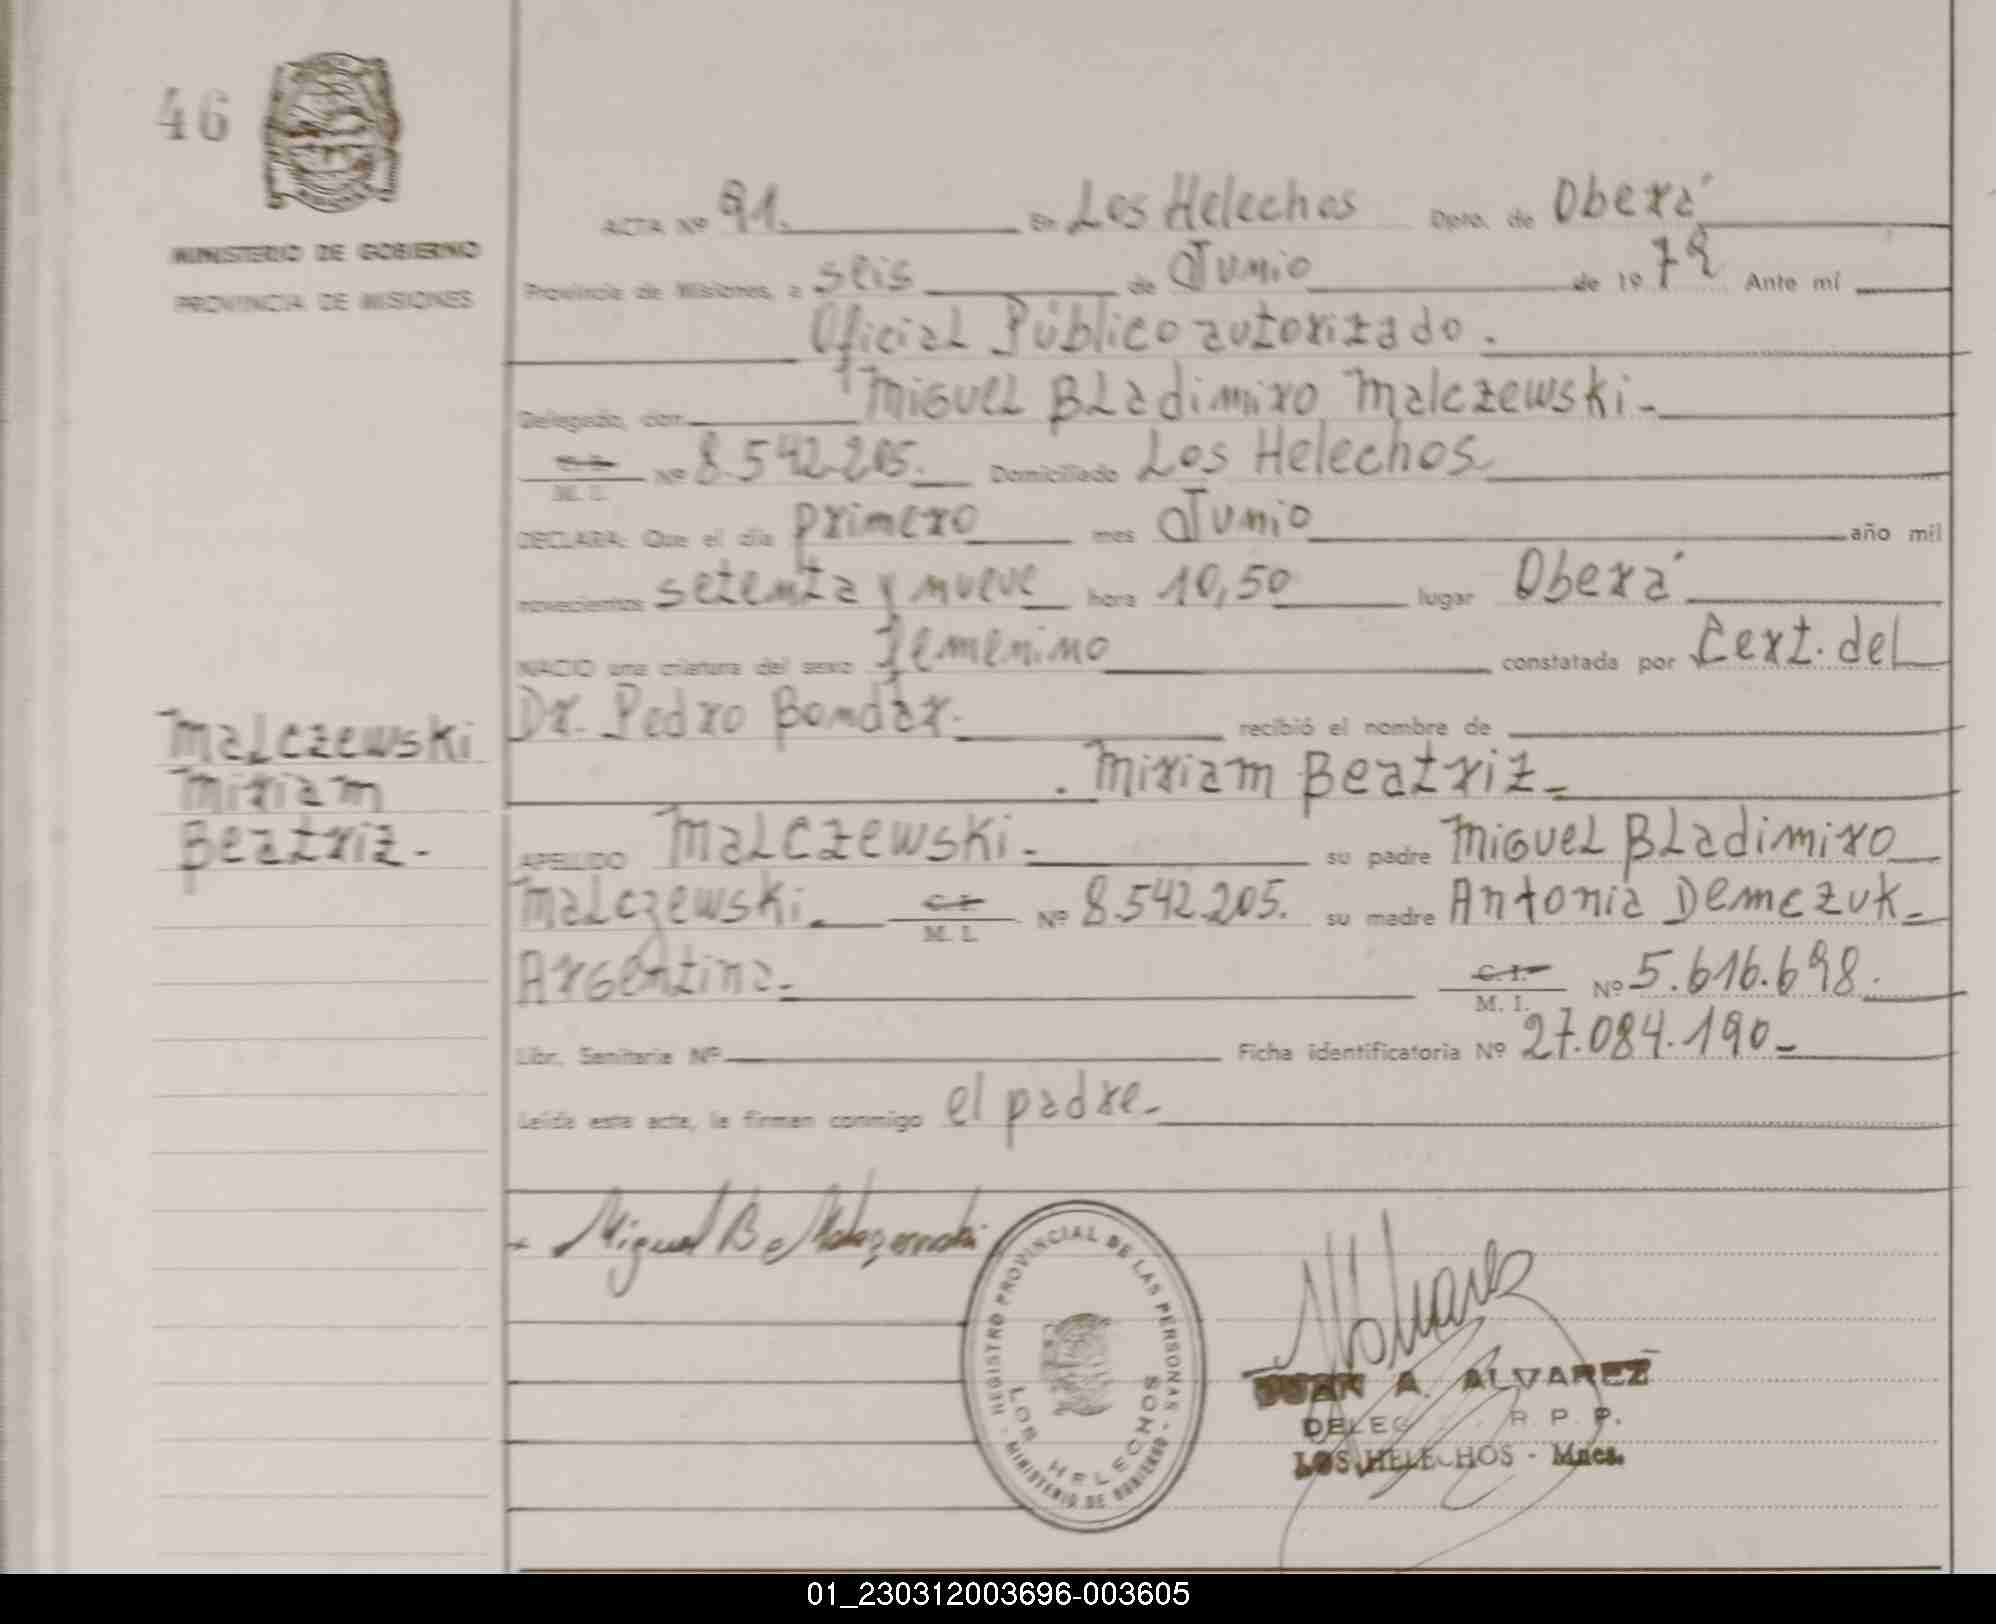 46
MINISTERIO DE GOBIERNO
PROVINCIA DE MISIONES
ACTA Nº 91. En Los Helechos Dpto. de Oberá
Provincia de Misiones, a seis de Junio de 1979 Ante mí
Oficial Público autorizado.
Delegado, don Miguel Bladimiro Malczewski.
C. I. M. I. Nº 8.542.205. Domiciliado Los Helechos
DECLARA: Que el día primero mes Junio año mil
novecientos setenta y nueve hora 10,50 lugar Oberá
NACIO una criatura del sexo femenino constatada por Cert. del
Dr. Pedro Bondar. recibió el nombre de
. Miriam Beatriz.
APELLIDO Malczewski. su padre Miguel Bladimiro
Malczewski. C. I. M. I. Nº 8.542.205. su madre Antonia Demczuk.
Argentina. C. I. M. I. Nº 5.616.698.
Libr. Sanitaria Nº Ficha identificatoria Nº 27.084.190
Leída este acta, la firman conmigo el padre.
Malczewski
Miriam
Beatriz.
Miguel B. Malczewski
REGISTRO PROVINCIAL DE LAS PERSONAS - MINISTERIO DE GOBIERNO -
LOS HELECHOS
JUAN A. ALVAREZ
DELEG R. P. P.
LOS HELECHOS - Mnes.
01_230312003696-003605